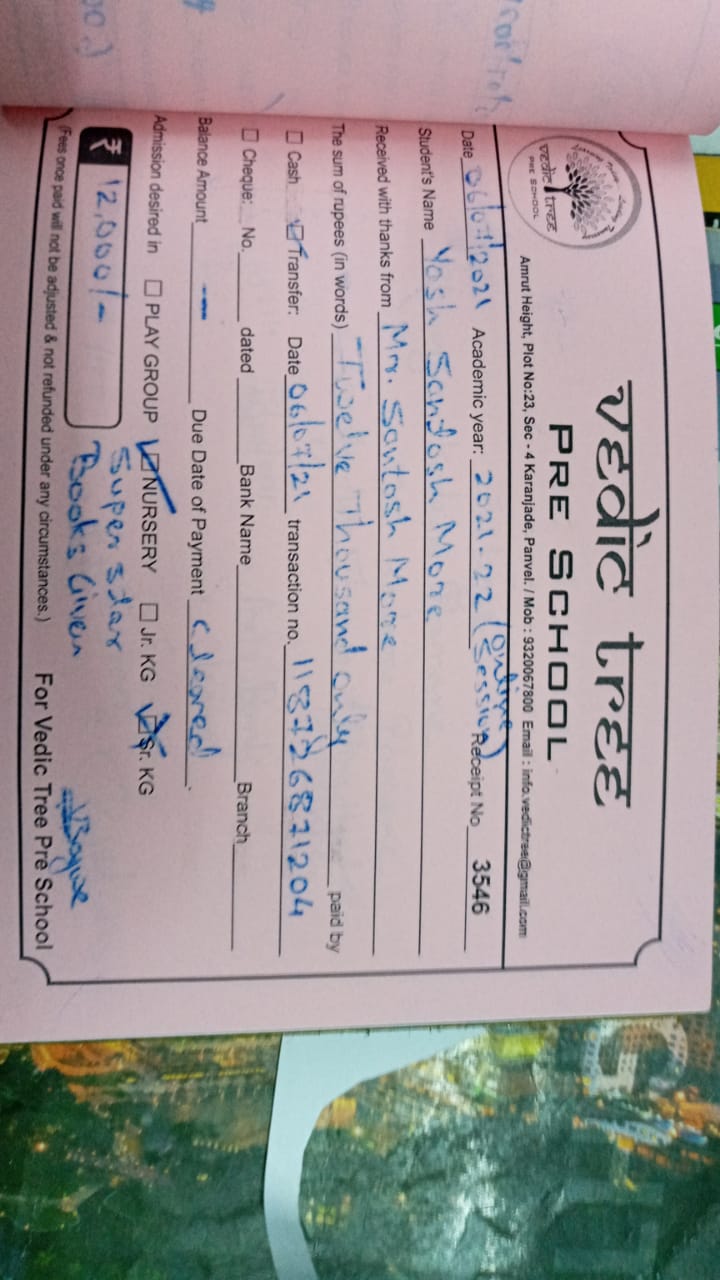 vedic tree
PRE SCHOOL
vedic tree
PRE SCHOOL
Amrut Height, Plot No:23, Sec - 4 Karanjade, Panvel. / Mob : 9320067800 Email : info.vedictree@gmail.com
Date 06/07/2021 Academic year: 2021-22 (Online Session) Receipt No 3546
Student's Name Yash Santosh More
Received with thanks from Mr. Santosh More
The sum of rupees (in words) Twelve Thousand only paid by
Cash Transfer: Date 06/07/21 transaction no. 118726871204
Cheque: No. dated Bank Name Branch
Balance Amount — Due Date of Payment Cleared.
Admission desired in PLAY GROUP NURSERY Jr. KG Sr. KG
₹ 12,000/- Super star
Books Given
(Fees once paid will not be adjusted & not refunded under any circumstances.) For Vedic Tree Pre School